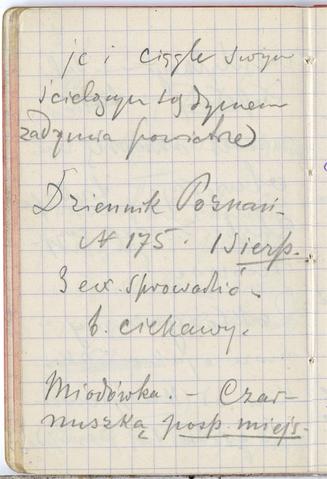 je i ciągle swym
ścielącym się dymem
zadymia powietrze)
Dziennik Poznań-
N 175. 1 Sierp.
3 ex. sprowadzić
b. ciekawy.
Miodówka. - Czar-
nuszką posp. miejs-